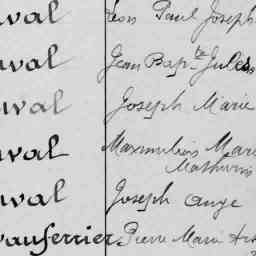 uval Léon Paul Joseph
uval Jean Bapte Jules
uval Joseph Marie
uval Maximilien Marie
Mathurin
uval Joseph Ange
vauferrier Pierre Marie